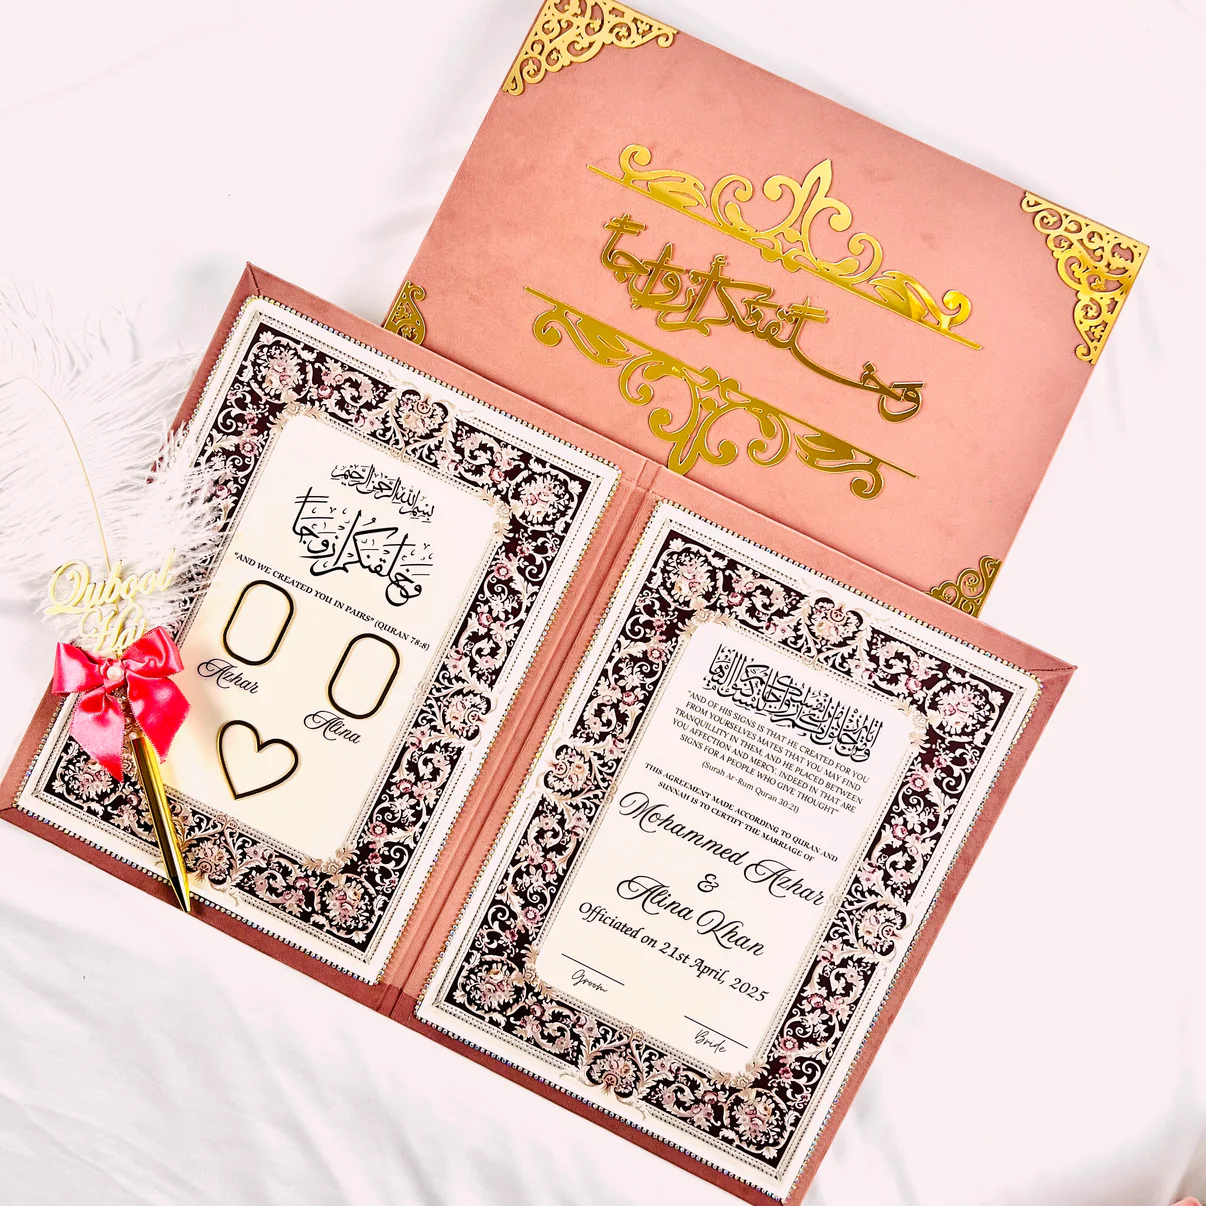 وخلقنكم أزواجا
بسم الله الرحمن الرحيم
وخلقنكم أزوجا
"AND WE CREATED YOU IN PAIRS" (QURAN 78:8)
Azhar
Alina
Qubool
Hai
"AND OF HIS SIGNS IS THAT HE CREATED FOR YOU
FROM YOURSELVES MATES THAT YOU MAY FIND
TRANQUILITY IN THEM, AND HE PLACED BETWEEN
YOU AFFECTION AND MERCY. INDEED IN THAT ARE
SIGNS FOR A PEOPLE WHO GIVE THOUGHT"
(Surah Ar-Rum Quran 30-21)
THIS AGREEMENT MADE ACCORDING TO QURAN AND
SUNNAH IS TO CERTIFY THE MARRIAGE OF
Mohammed Azhar
&
Alina Khan
Officiated on 21st April, 2025
Groom
Bride